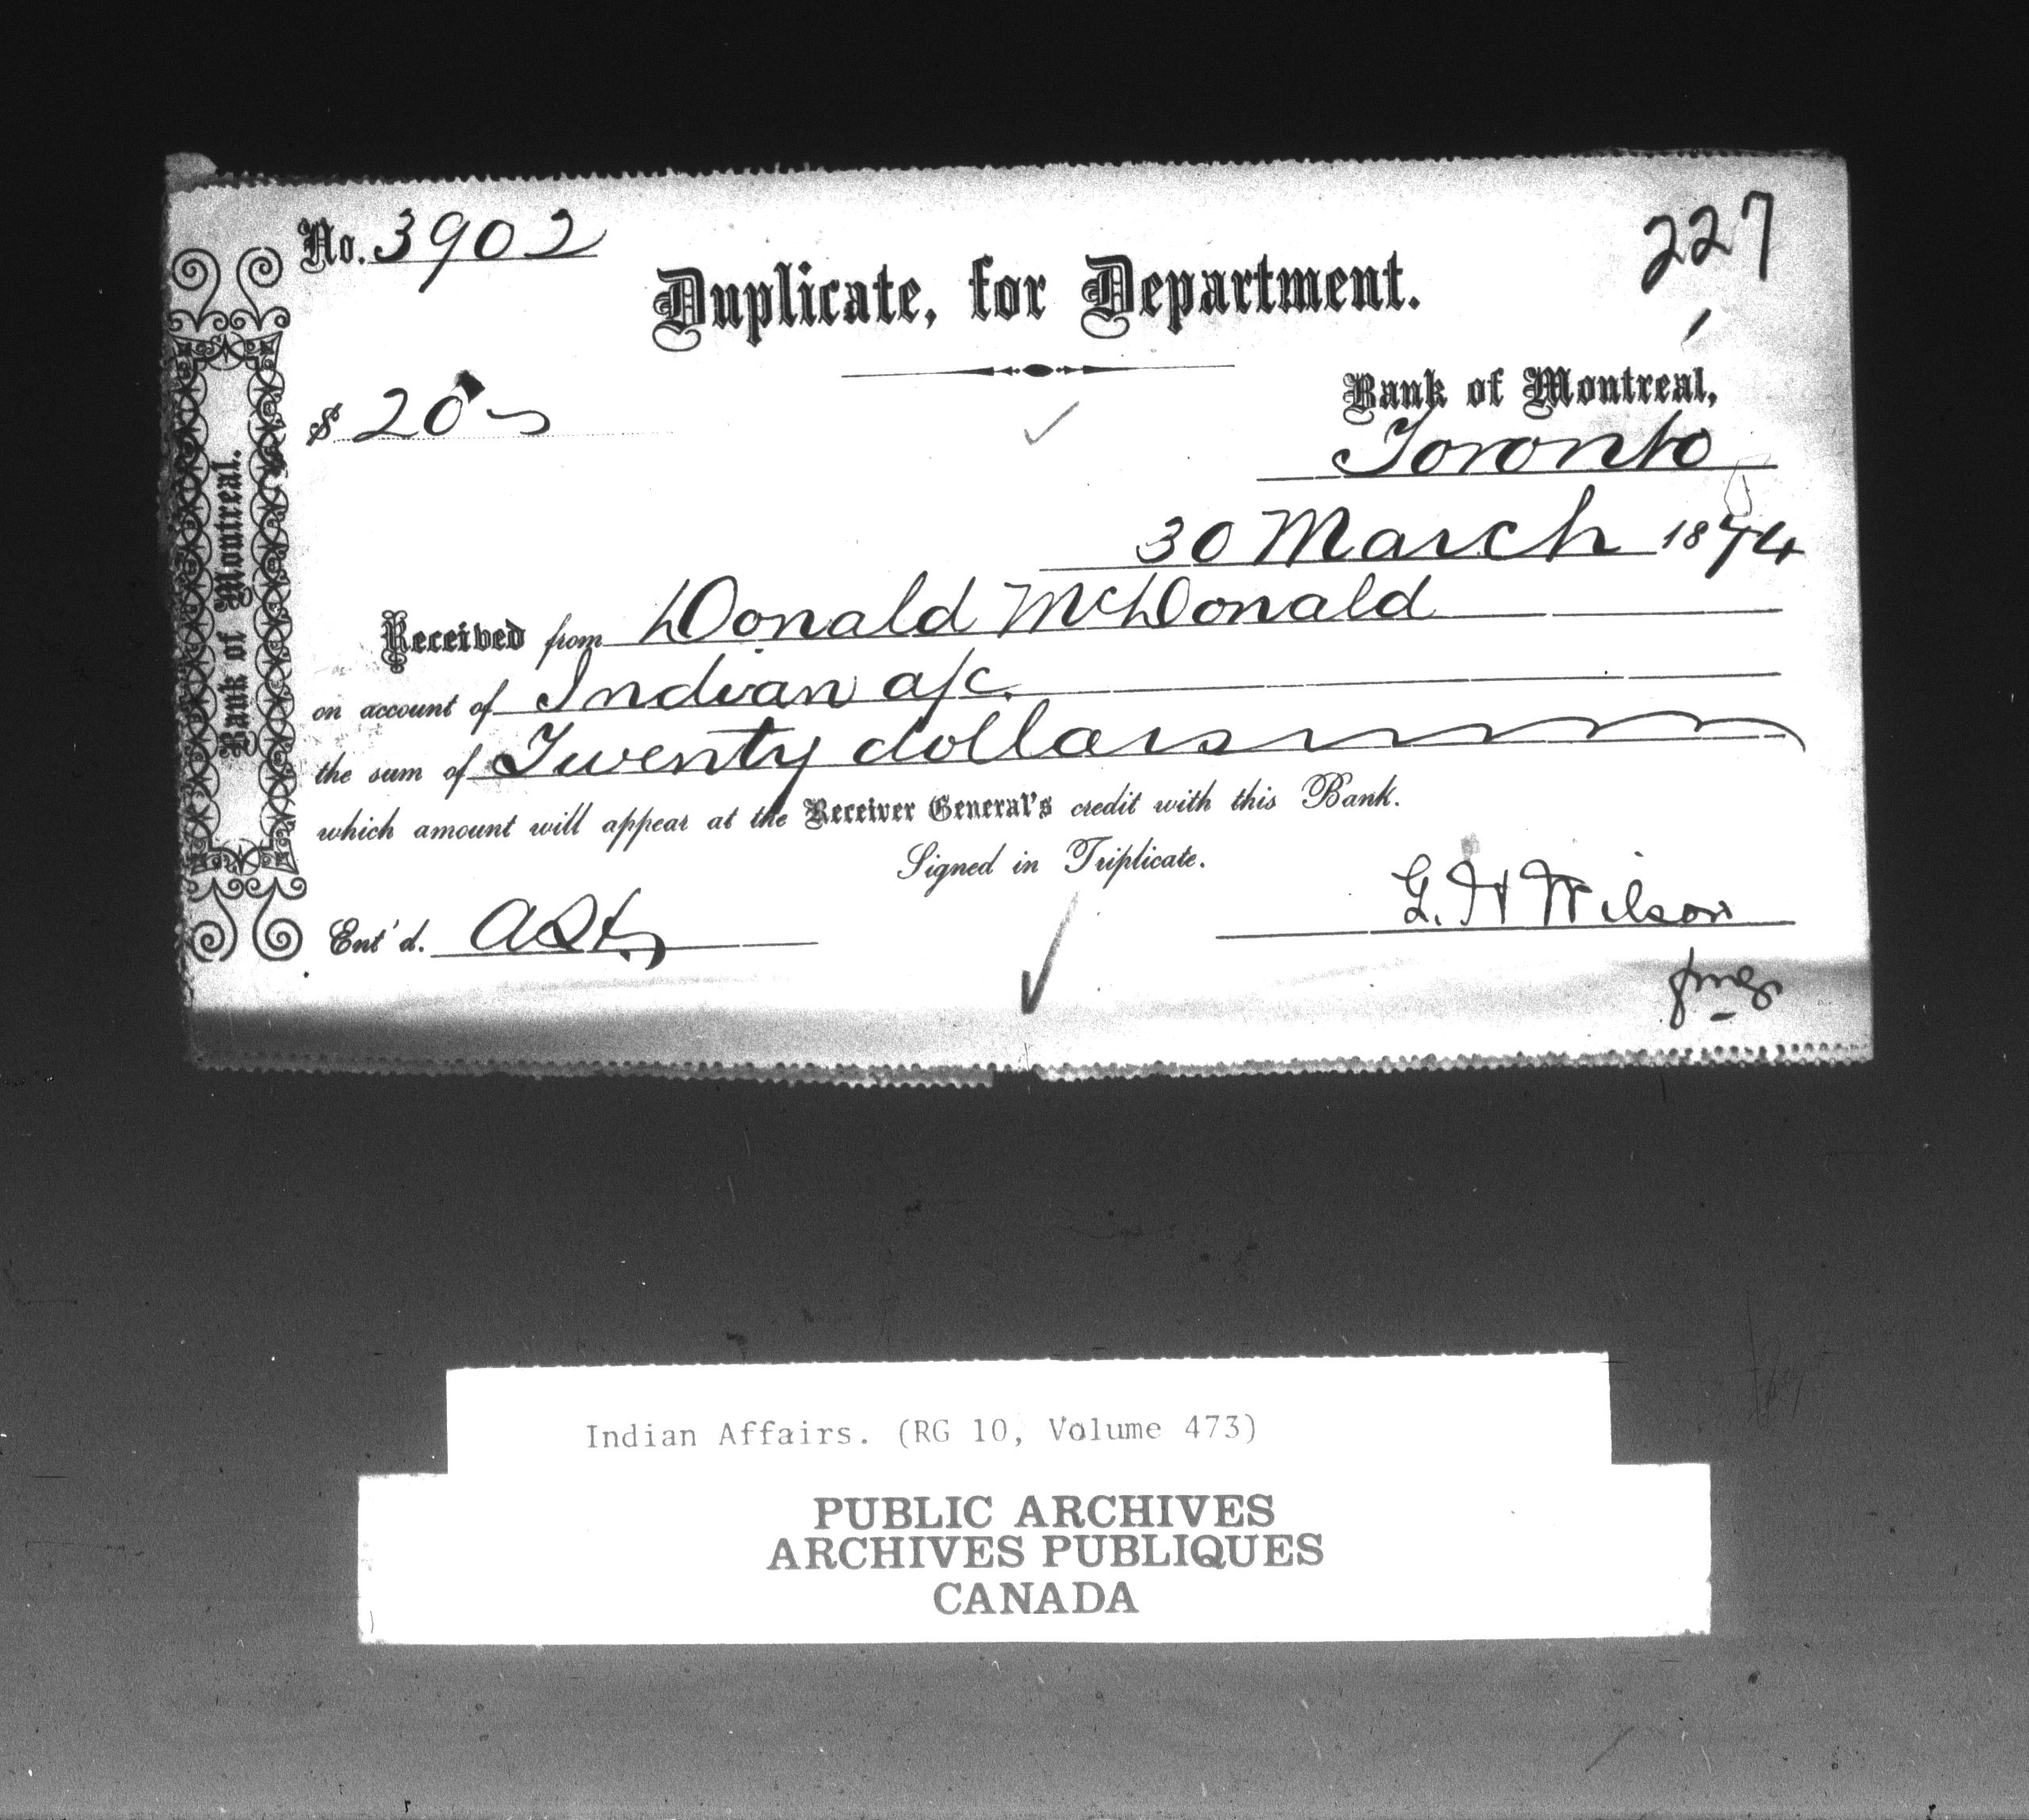 No. 3902
227
Duplicate, for Department.
$ 20
Bank of Montreal,
Toronto
30 March 1874
Received from Donald McDonald
on account of Indian a/c.
the sum of Twenty dollars
which amount will appear at the Receiver General's credit with this Bank.
Signed in Triplicate.
Ent'd.
G. H Wilson
Bank of Montreal.
Indian Affairs. (RG 10, Volume 473)
PUBLIC ARCHIVES
ARCHIVES PUBLIQUES
CANADA